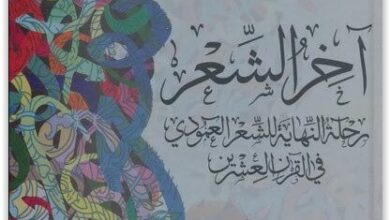 آخِرُ الشِّعْر
رحلة النِّهاية للشِّعر العمودي
في القرن العشرين